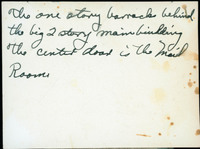 The one story barracks behind
the big 2 story main building
The center door is the Mail
Room